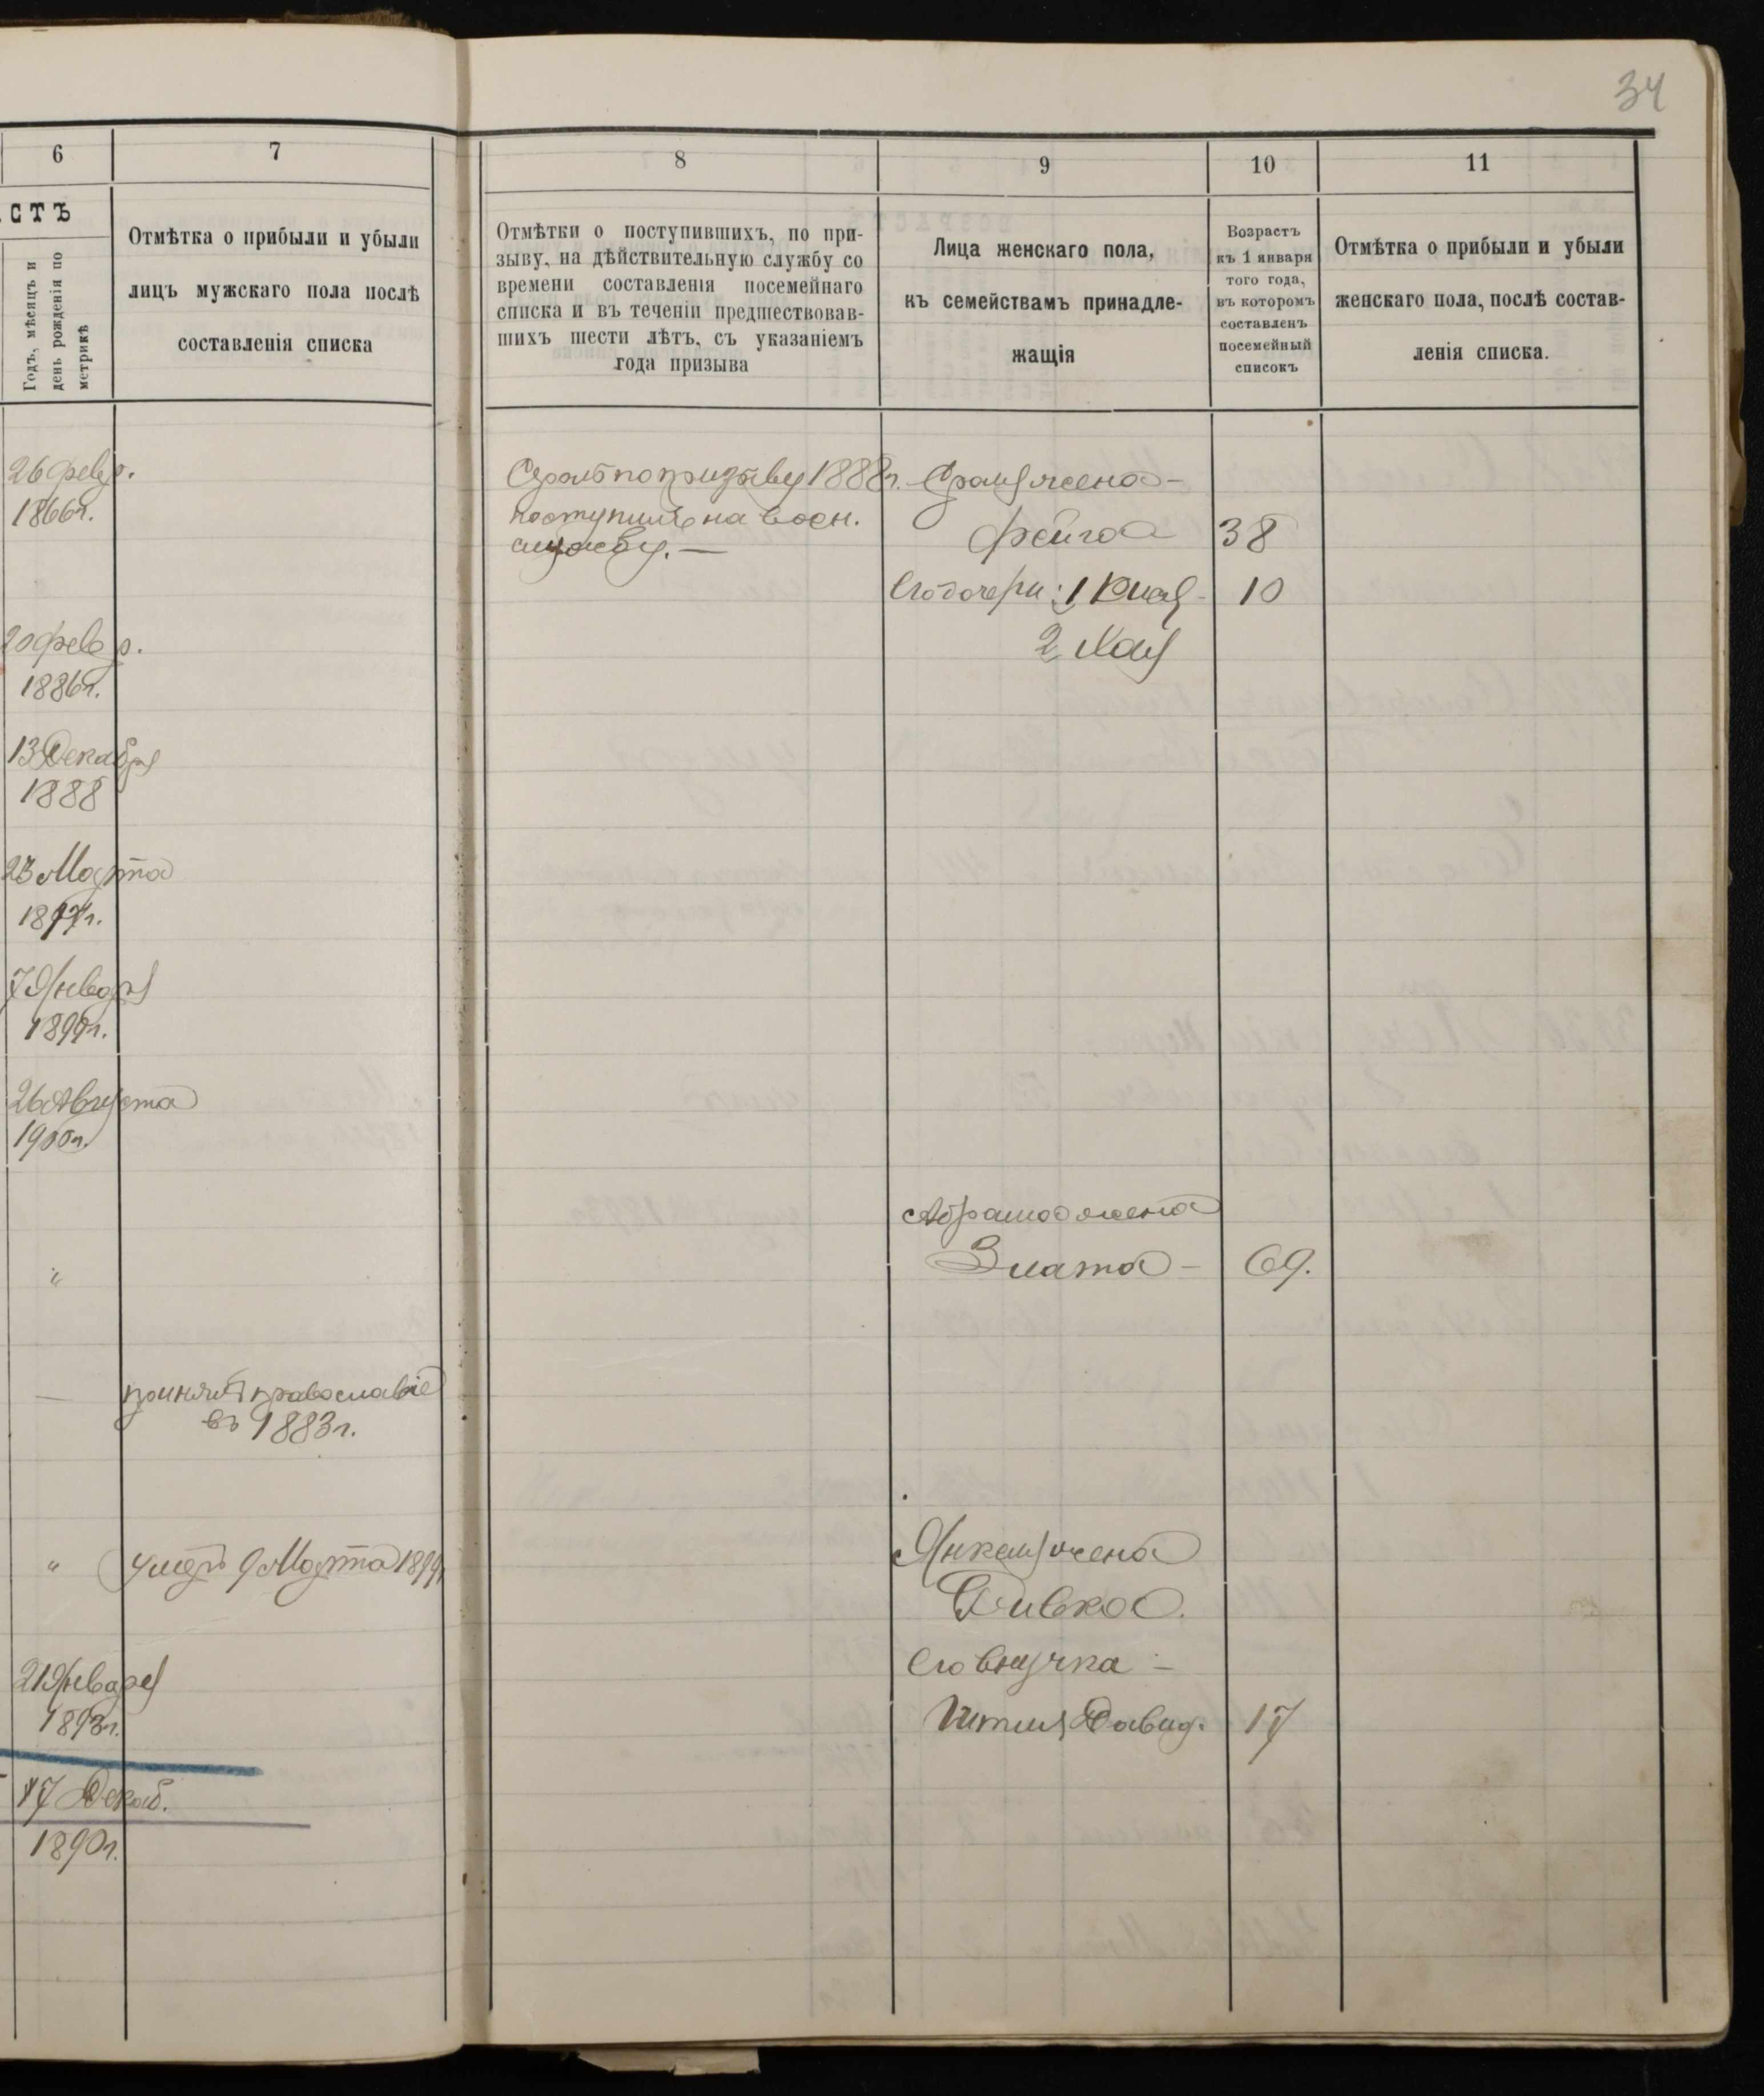 34
6
7
8
9
10
11
СТЪ
Годъ, мѣсяцъ и
день рожденія по
метрикѣ
Отмѣтка о прибыли и убыли
лицъ мужскаго пола послѣ
составленія списка
Отмѣтки о поступившихъ, по при-
зыву, на дѣйствительную службу со
времени составленія посемейнаго
списка и въ теченіи предшествовав-
шихъ шести лѣтъ, съ указаніемъ
года призыва
Лица женскаго пола,
къ семействамъ принадле-
жащія
Возрастъ
къ 1 января
того года,
въ которомъ
составленъ
посемейный
списокъ
Отмѣтка о прибыли и убыли
женскаго пола, послѣ состав-
ленія списка.
26 февр.
1866 г.
Сроль по призыву 1888 г.
поступилъ на воен.
службу. —
Сроля жена —
Фейга 38
Его дочери: 1 Кися - 10
2 Хая
20 февр.
1886 г.
13 Декабря
1888
23 Марта
1897 г.
7 Января
1899 г.
26 Августа
1900 г.
Абрама жена
"
Злата - 69.
— принялъ православіе
въ 1883 г.
" умеръ 9 Марта 1899
Янкеля жена
Ривка.
Его внучка —
21 Января
1893 г.
Итля Давид. 17
17 Декаб.
1890 г.